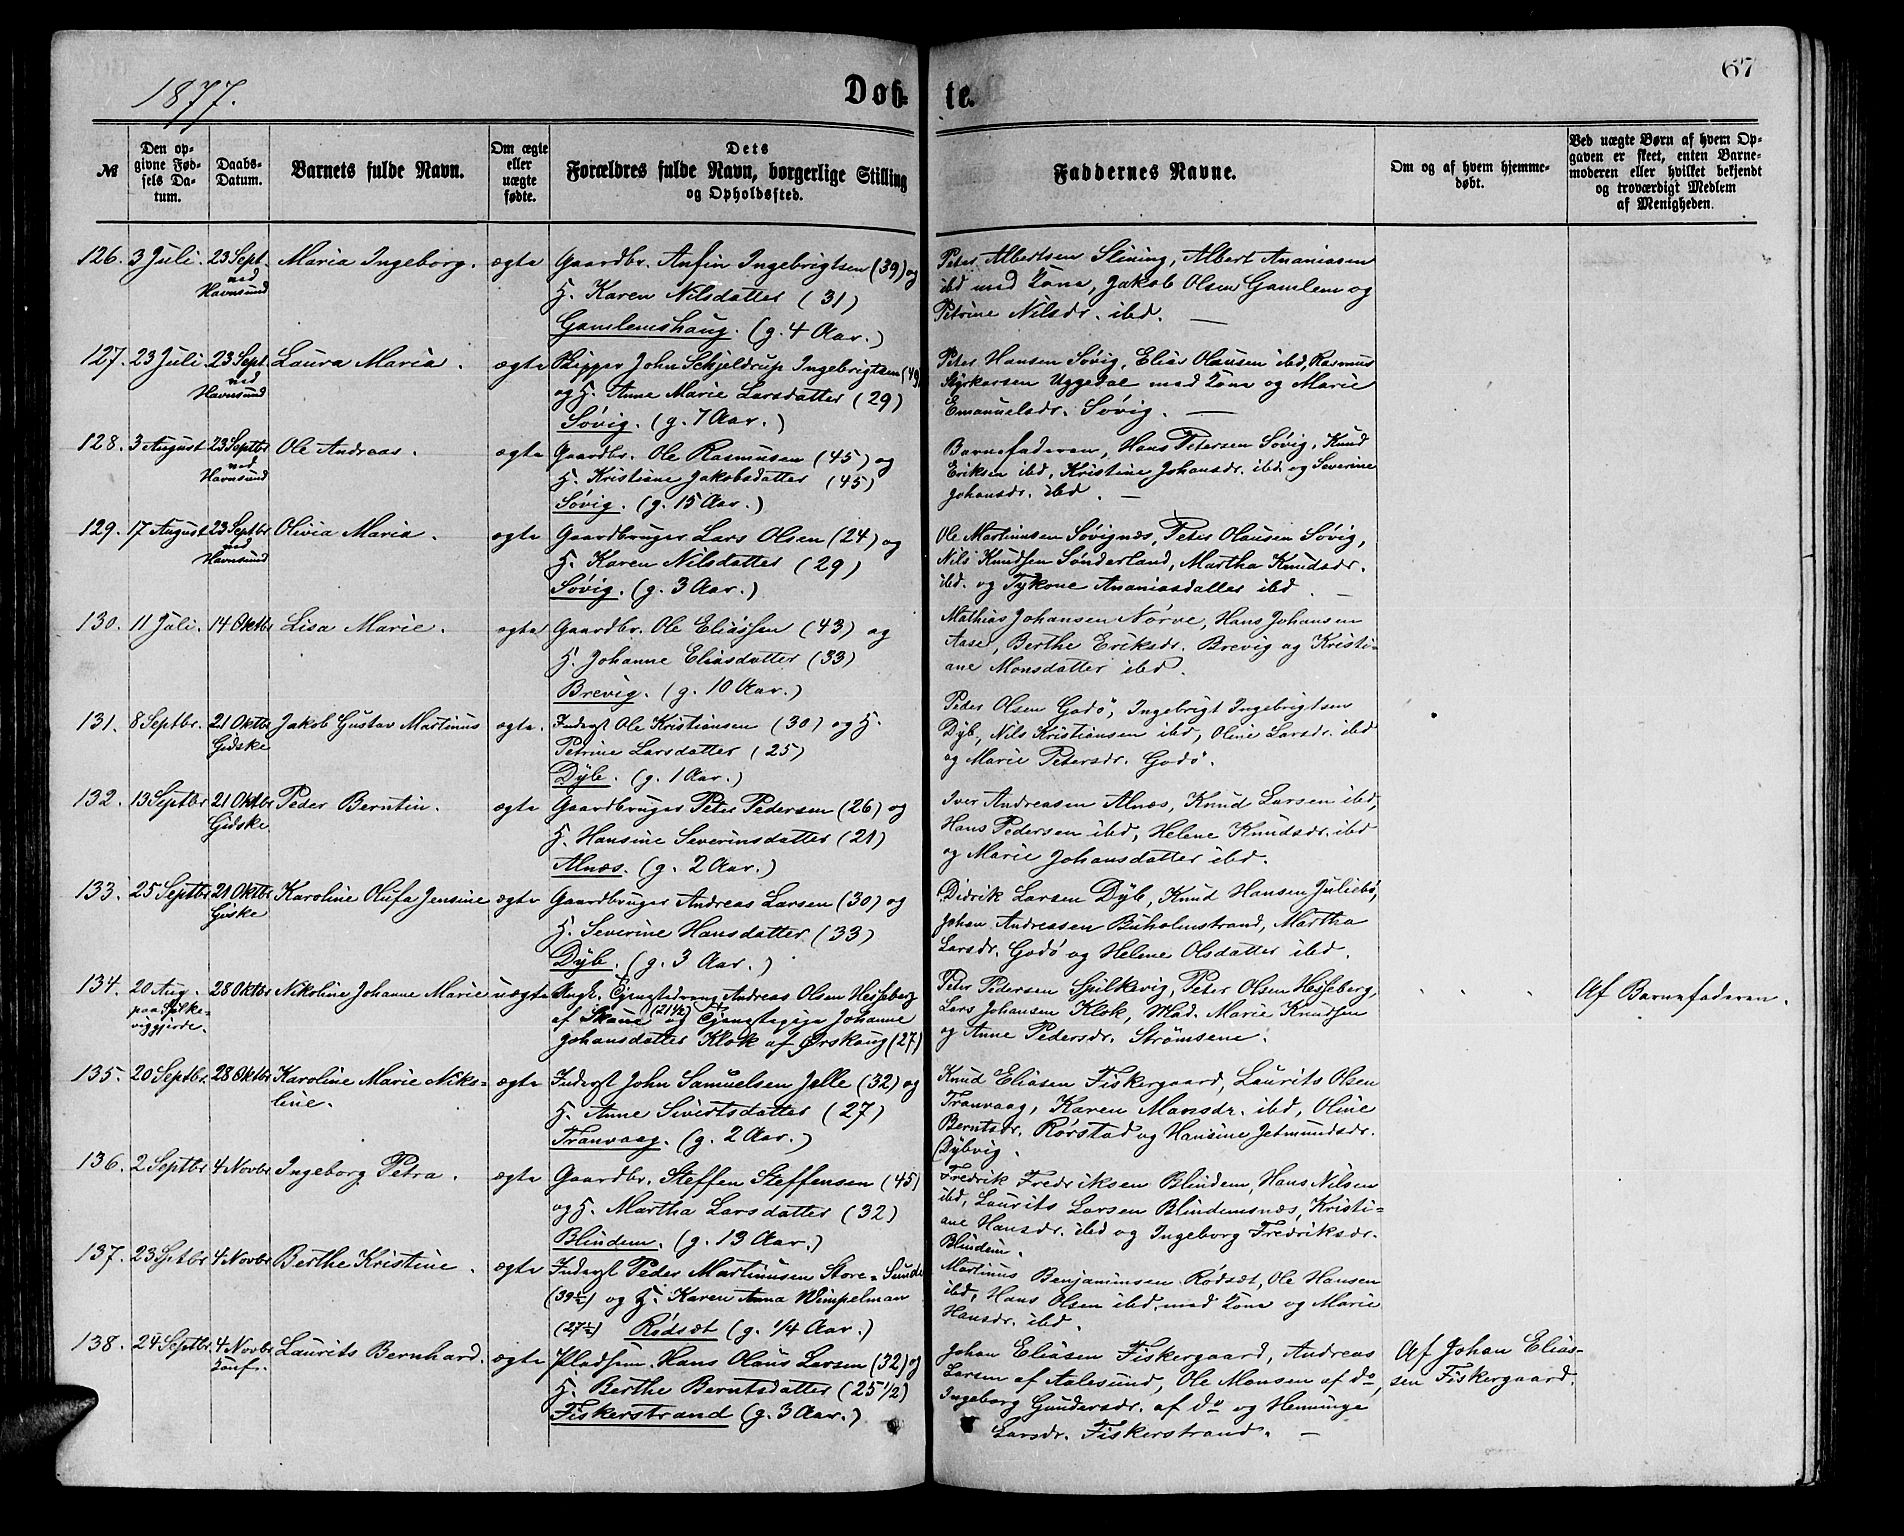 1877.
Døb-
te.
67
№
Den op-
givne Fød-
sels Da-
tum.
Daabs-
Datum.
Barnets fulde Navn.
Om ægte
eller
uægte
fødte.
Dets
Forældres fulde Navn, borgerlige Stilling
og Opholdssted.
Faddernes Navne.
Om og af hvem hjemme-
døbt.
Ved uægte Børn af hvem Op-
gaven er skeet, enten Barne-
moderen eller hvilket bekjendt
og troværdigt Medlem
af Menigheden.
126. 3 Juli. 23 Sept. ved Havnsund Maria Ingeborg. ægte
Gaardbr. Anfin Ingebrigtsen (39) og
H. Karen Nilsdatter (31)
Gamlemshaug. (g. 4 Aar.)
Peter Albertsen Slining, Albert Ananiasen
ibd med Kone, Jakob Olsen Gamlem og
Petrine Nilsdr. ibd. —
127. 23 Juli 23 Sept. ved Havnsund Laura Maria. ægte
Skipper John Schjeldrup Ingebrigtsen (49)
og H. Anne Marie Larsdatter (29)
Søvig. (g. 7 Aar.)
Peter Hansen Søvig, Elias Olausen ibd, Rasmus
Styrkarsen Uggedal med Kone og Marie
Emanuelsdr. Søvig. —
128. 3 August 23 Septbr ved Havnsund Ole Andreas. ægte
Gaardbr. Ole Rasmusen (45) og
H. Kristine Jakobsdatter (45)
Søvig. (g. 15 Aar.)
Barnefaderen, Hans Petersen Søvig, Knud
Eriksen ibd, Kristine Johansdr. ibd. og Severine
Johansdr. ibd. —
129. 17 August 23 Septbr ved Havnsund Olivia Maria. ægte
Gaardbruger Lars Olsen (24) og
H. Karen Nilsdatter (29)
Søvig. (g. 3 Aar.)
Ole Martinusen Søvignæs, Peter Olausen Søvig,
Nils Knudsen Sønderland, Martha Knudsdr.
ibd. og Ananiasdatter ibd. —
130. 11 Juli. 14 Oktbr Lisa Marie. ægte
Gaardbr. Ole Eliassen (43) og
H. Johanne Eliasdatter (33)
Brevig. (g. 10 Aar.)
Mathias Johansen Nørve, Hans Johansen
Aase, Berthe Eriksdr. Brevig og Kristi-
ane Monsdatter ibd.
131. 8 Septbr. 21 Oktbr Gidske Jakob Gustav Martinus ægte.
Inderst Ole Kristiansen (30) og H.
Petrine Larsdatter (25)
Dyb. (g. 1 Aar.)
Peder Olsen Godø, Ingebrigt Ingebrigtsen
Dyb, Nils Kristiansen ibd, Oline Larsdr. ibd
og Marie Petersdr. Godø.
132. 13 Septbr 21 Oktbr Gidske Peder Berntin. ægte
Gaardbruger Peter Pedersen (26) og
H. Hansine Severinsdatter (21)
Alnæs. (g. 2 Aar.)
Iver Andreasen Alnæs, Knud Larsen ibd,
Hans Pedersen ibd, Helene Knudsdr. ibd
og Marie Johansdatter ibd.
133. 25 Septbr 21 Oktbr Giske Karoline Olufa Jensine ægte
Gaardbruger Andreas Larsen (30) og
H. Severine Hansdatter (33)
Dyb. (g. 3 Aar.)
Didrik Larsen Dyb, Knud Hansen Juliebø,
Johan Andreasen Buholmstrand, Martha
Larsdr. Godø og Helene Olsdatter ibd.
134. 20 Aug. paa Spilke-viggjerde. 28 Oktbr Nikoline Johanne Marie uægte
Ungk. Tjenestedreng Andreas Olsen Hesseberg
af Skaue (21 1/2) og Tjenestepige Johanne
Johansdatter Klok af Ørskoug (27)
Peter Pedersen Spilkevig, Peter Olsen Hesseberg,
Lars Johansen Klok, Mad. Marie Knudsen
og Anne Pedersdr. Strømsene.
Af Barnefaderen.
135. 20 Septbr. 28 Oktbr Karoline Marie Niko-
line. ægte
Inderst John Samuelsen Jelle (32) og
H. Anne Sivertsdatter (27)
Tranvaag. (g. 2 Aar.)
Knud Eliasen Fiskergaard, Laurits Olsen
Tranvaag, Karen Monsdr. ibd, Oline
Berntsdr. Rørstad og Hansine Jetmundsdr.
Dybvig.
136. 2 Septbr 4 Novbr Ingeborg Petra. ægte
Gaardbr. Steffen Steffensen (45)
og H. Martha Larsdatter (32)
Blindem. (g. 13 Aar.)
Fredrik Fredriksen Blindem, Hans Nilsen
ibd, Laurits Larsen Blindemsnæs, Kristi-
ane Hansdr. ibd og Ingeborg Fredriksdr.
Blindem.
137. 23 Septbr 4 Novbr Berthe Kristine. ægte
Inderst Peder Martinusen Store-Sunde
(39 1/2) og H. Karen Anna Wimpelman
(27 1/2) Rødsæt (g. 1/4 Aar.)
Martinus Benjaminsen Rødsæt, Ole Hansen
ibd, Hans Olsen ibd. med Kone og Marie
Hansdr. ibd.
138. 24 Septbr. 4 Novbr Konf. Laurits Bernhard. ægte
Pladsem. Hans Olaus Larsen (32) og
H. Berthe Berntsdatter (25 1/2)
Fiskerstrand (g. 3 Aar.)
Johan Eliasen Fiskergaard, Andreas
Larsen af Aalesund, Ole Monsen af do,
Ingeborg Gundersdr. af do og Henninge
Larsdr. Fiskerstrand. —
Af Johan Elias-
sen Fiskergaard.